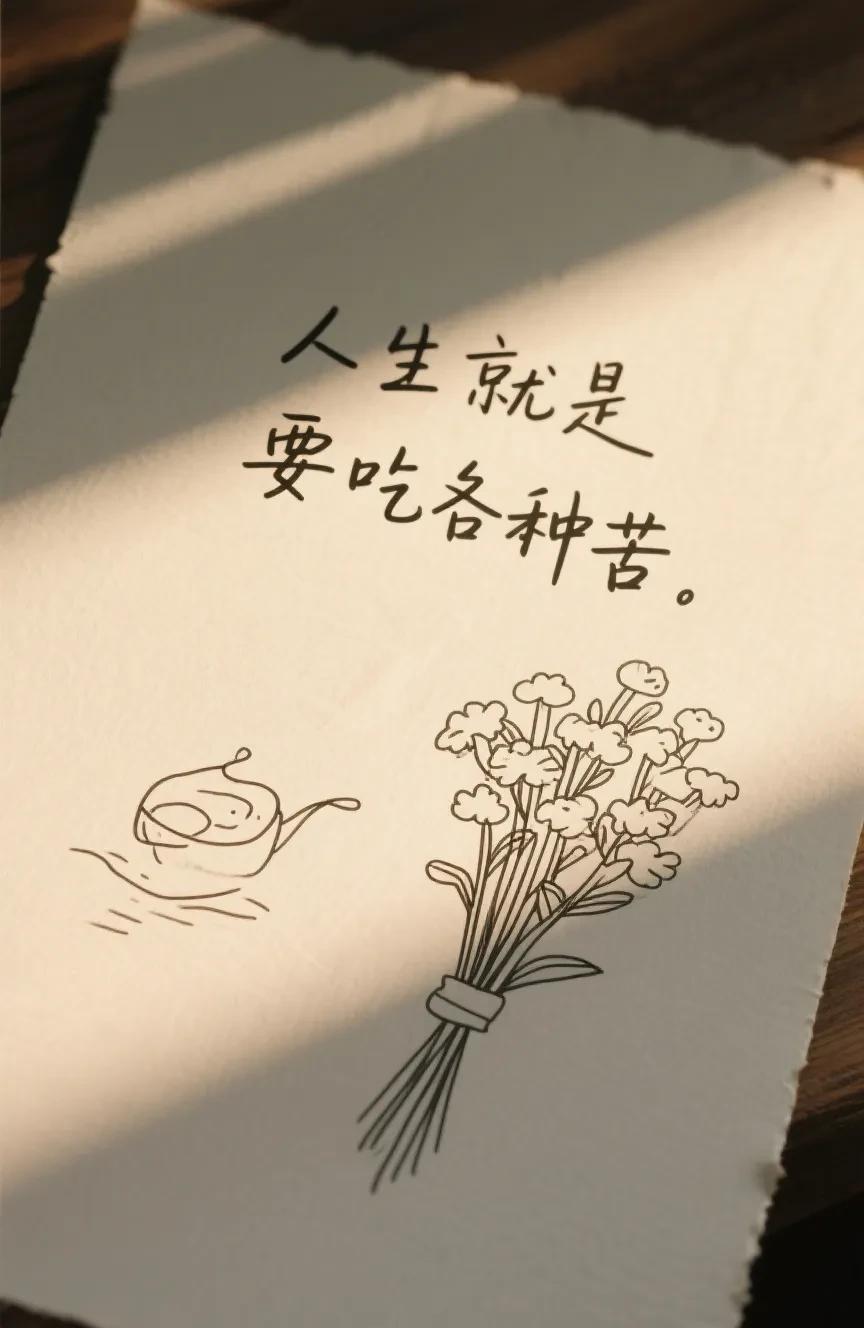 人生就是
要吃各种苦。